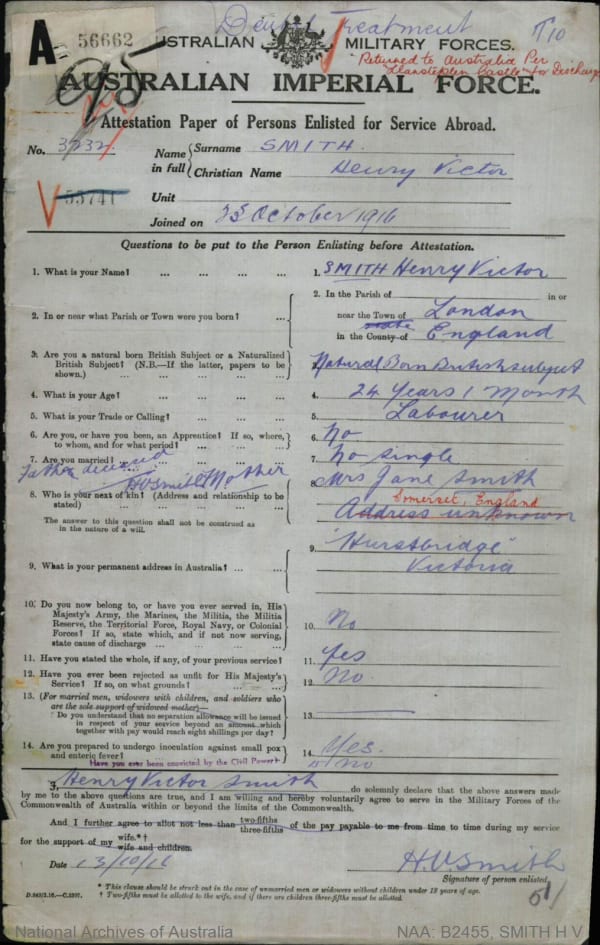 Dental Treatment
A 56662
AUSTRALIAN MILITARY FORCES.
Returned to Australia Per
Llanstephen Castle for Discharge
AUSTRALIAN IMPERIAL FORCE.
Attestation Paper of Persons Enlisted for Service Abroad.
No. 3232 Name in full Surname SMITH.
Christian Name Henry Victor
55741
Unit
Joined on October 1916
Questions to be put to the Person Enlisting before Attestation.
1. What is your Name? ... ... ... ... 1. SMITH Henry Victor
2. In or near what Parish or Town were you born? ... 2. In the Parish of in or
near the Town of London
state
in the County of England
3. Are you a natural born British Subject or a Naturalized
British Subject? (N.B.—If the latter, papers to be
shown.) Natural Born British subject
4. What is your Age? 4. 24 Years 1 Month
5. What is your Trade or Calling? 5. Labourer
6. Are you, or have you been, an Apprentice? If so, where,
to whom, and for what period? 6. No
7. Are you married? 7. No single
Father deceased
HVSmith Mother
8. Who is your next of kin? (Address and relationship to be
stated) 8 Mrs Jane Smith
Somerset, England
Address unknown
The answer to this question shall not be construed as
in the nature of a will.
9. What is your permanent address in Australia? ... ... 9. "Hurstbridge"
Victoria
10. Do you now belong to, or have you ever served in, His
Majesty's Army, the Marines, the Militia, the Militia
Reserve, the Territorial Force, Royal Navy, or Colonial
Forces? If so, state which, and if not now serving,
state cause of discharge 10. No
11. Have you stated the whole, if any, of your previous service? 11. Yes
12. Have you ever been rejected as unfit for His Majesty's
Service? If so, on what grounds? 12. No.
13. (For married men, widowers with children, and soldiers who
are the sole support of widowed mother)—
Do you understand that no separation allowance will be issued
in respect of your service beyond an amount which
together with pay would reach eight shillings per day? 13.
14. Are you prepared to undergo inoculation against small pox
and enteric fever? 14. Yes.
Have you ever been convicted by the Civil Power? No
I, Henry Victor Smith do solemnly declare that the above answers made
by me to the above questions are true, and I am willing and hereby voluntarily agree to serve in the Military Forces of the
Commonwealth of Australia within or beyond the limits of the Commonwealth.
And I further agree to allot not less than two-fifths three-fifths of the pay payable to me from time to time during my service
for the support of my wife.*† wife and children.
Date 13/10/16 HVSmith
Signature of person enlisted.
* This clause should be struck out in the case of unmarried men or widowers without children under 18 years of age.
† Two-fifths must be allotted to the wife, and if there are children three-fifths must be allotted.
National Archives of Australia NAA: B2455, SMITH H V